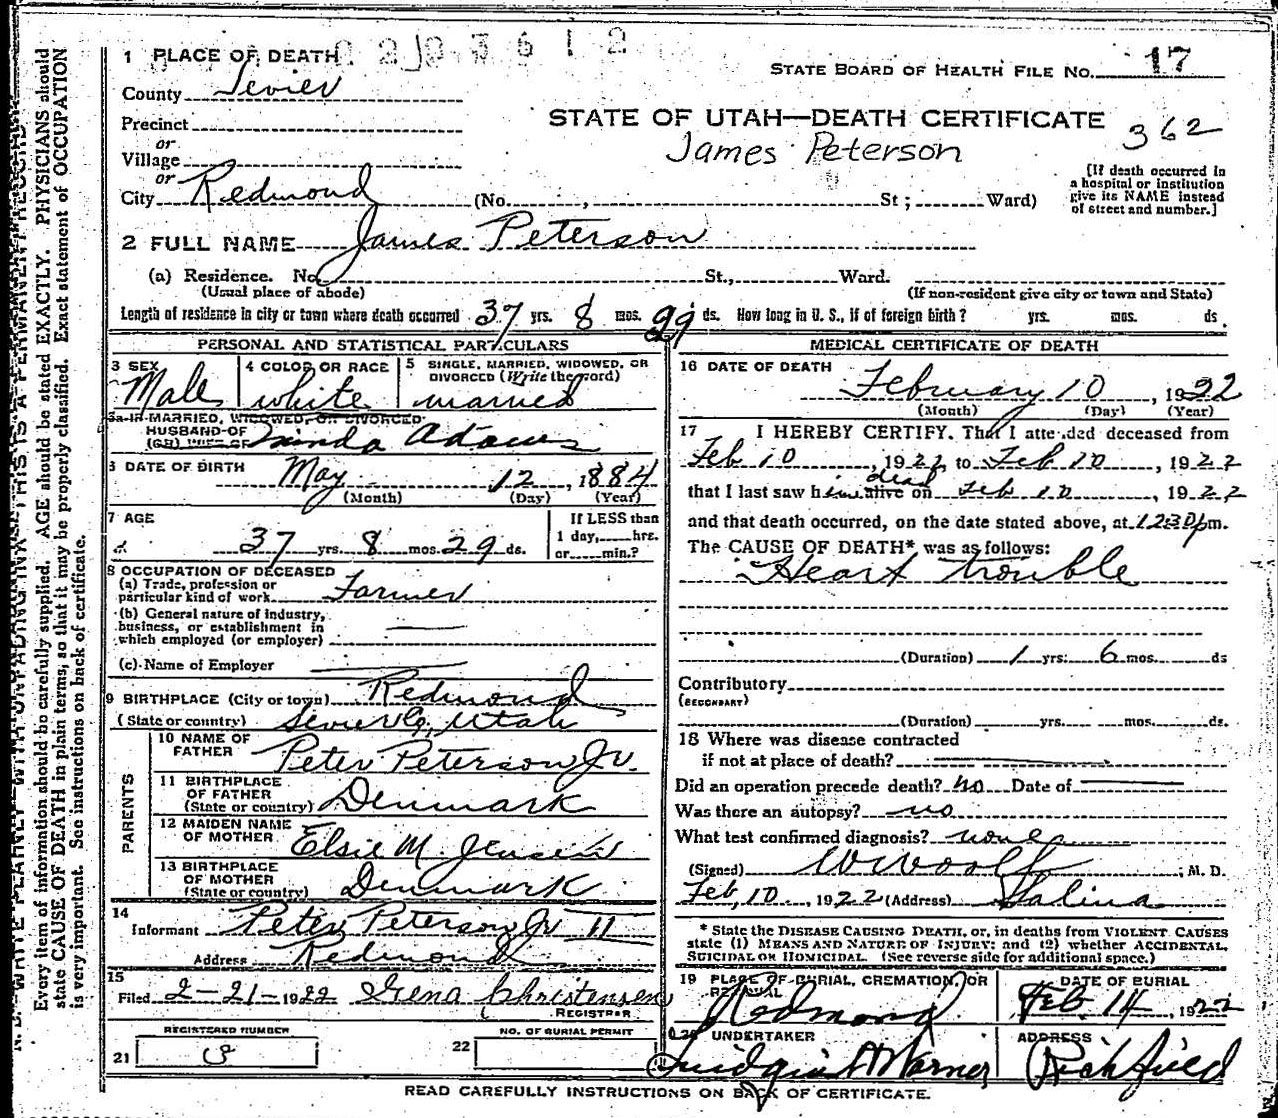 1 PLACE OF DEATH
STATE BOARD OF HEALTH FILE NO. 17
County Sevier
Precinct
STATE OF UTAH—DEATH CERTIFICATE 362
or
Village
James Peterson
or
City Redmond (No. , St; Ward)
[If death occurred in
a hospital or institution
give its NAME instead
of street and number.]
2 FULL NAME James Peterson
(a) Residence. No. St., Ward.
(Usual place of abode) (If non-resident give city or town and State)
Length of residence in city or town where death occurred 37 yrs. 8 mos. 29 ds. How long in U. S., if of foreign birth? yrs. mos. ds.
PERSONAL AND STATISTICAL PARTICULARS
3 SEX
Male
4 COLOR OR RACE
white
5 SINGLE, MARRIED, WIDOWED, OR
DIVORCED (Write the word)
married
5a IF MARRIED, WIDOWED, OR DIVORCED
HUSBAND OF
(OR) WIFE OF
Adams
6 DATE OF BIRTH May 12, 1884
(Month) (Day) (Year)
7 AGE
37 yrs. 8 mos. 29 ds.
If LESS than
1 day, hrs.
or min.?
8 OCCUPATION OF DECEASED
(a) Trade, profession or
particular kind of work Farmer
(b) General nature of industry,
business, or establishment in
which employed (or employer)
(c) Name of Employer
9 BIRTHPLACE (City or town) Redmond
(State or country) Sevier Co, Utah
PARENTS
10 NAME OF
FATHER Peter Peterson Jr.
11 BIRTHPLACE
OF FATHER
(State or country) Denmark
12 MAIDEN NAME
OF MOTHER Elsie M. Jensen
13 BIRTHPLACE
OF MOTHER
(State or country) Denmark
14
Informant Peter Peterson Jr II
Address Redmond
15
Filed 2-21-1922 Gena Christensen
REGISTRAR
REGISTERED NUMBER
21
NO. OF BURIAL PERMIT
22
MEDICAL CERTIFICATE OF DEATH
16 DATE OF DEATH
February 10, 1922
(Month) (Day) (Year)
17 I HEREBY CERTIFY, That I attended deceased from
Feb 10, 1922, to Feb 10, 1922
dead
that I last saw him alive on Feb 10, 1922
and that death occurred, on the date stated above, at 1230pm.
The CAUSE OF DEATH* was as follows:
Heart trouble
(Duration) 1 yrs. 6 mos. ds
Contributory
(SECONDARY)
(Duration) yrs. mos. ds.
18 Where was disease contracted
if not at place of death?
Did an operation precede death? no Date of
Was there an autopsy? no
What test confirmed diagnosis? none
(Signed) W Woolf, M. D.
Feb, 10, 1922 (Address) Salina
* State the DISEASE CAUSING DEATH, or, in deaths from VIOLENT CAUSES
state (1) MEANS AND NATURE OF INJURY; and (2) whether ACCIDENTAL,
SUICIDAL OR HOMICIDAL. (See reverse side for additional space.)
19 PLACE OF BURIAL, CREMATION, OR
REMOVAL
Redmond
DATE OF BURIAL
Feb. 14, 1922
20 UNDERTAKER
Warner
ADDRESS
Richfield
READ CAREFULLY INSTRUCTIONS ON BACK OF CERTIFICATE.
Every item of information should be carefully supplied. AGE should be stated EXACTLY. PHYSICIANS should
state CAUSE OF DEATH in plain terms, so that it may be properly classified. Exact statement of OCCUPATION
is very important. See instructions on back of certificate.